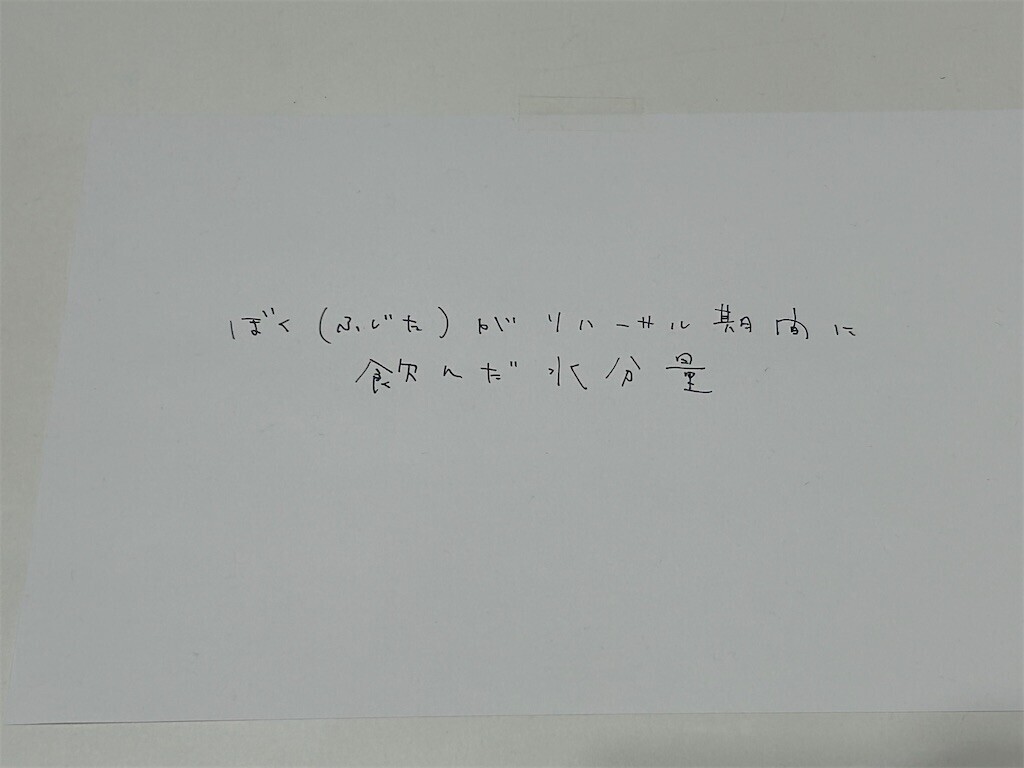 ぼく(ふじた)がリハーサル期間に
飲んだ水分量